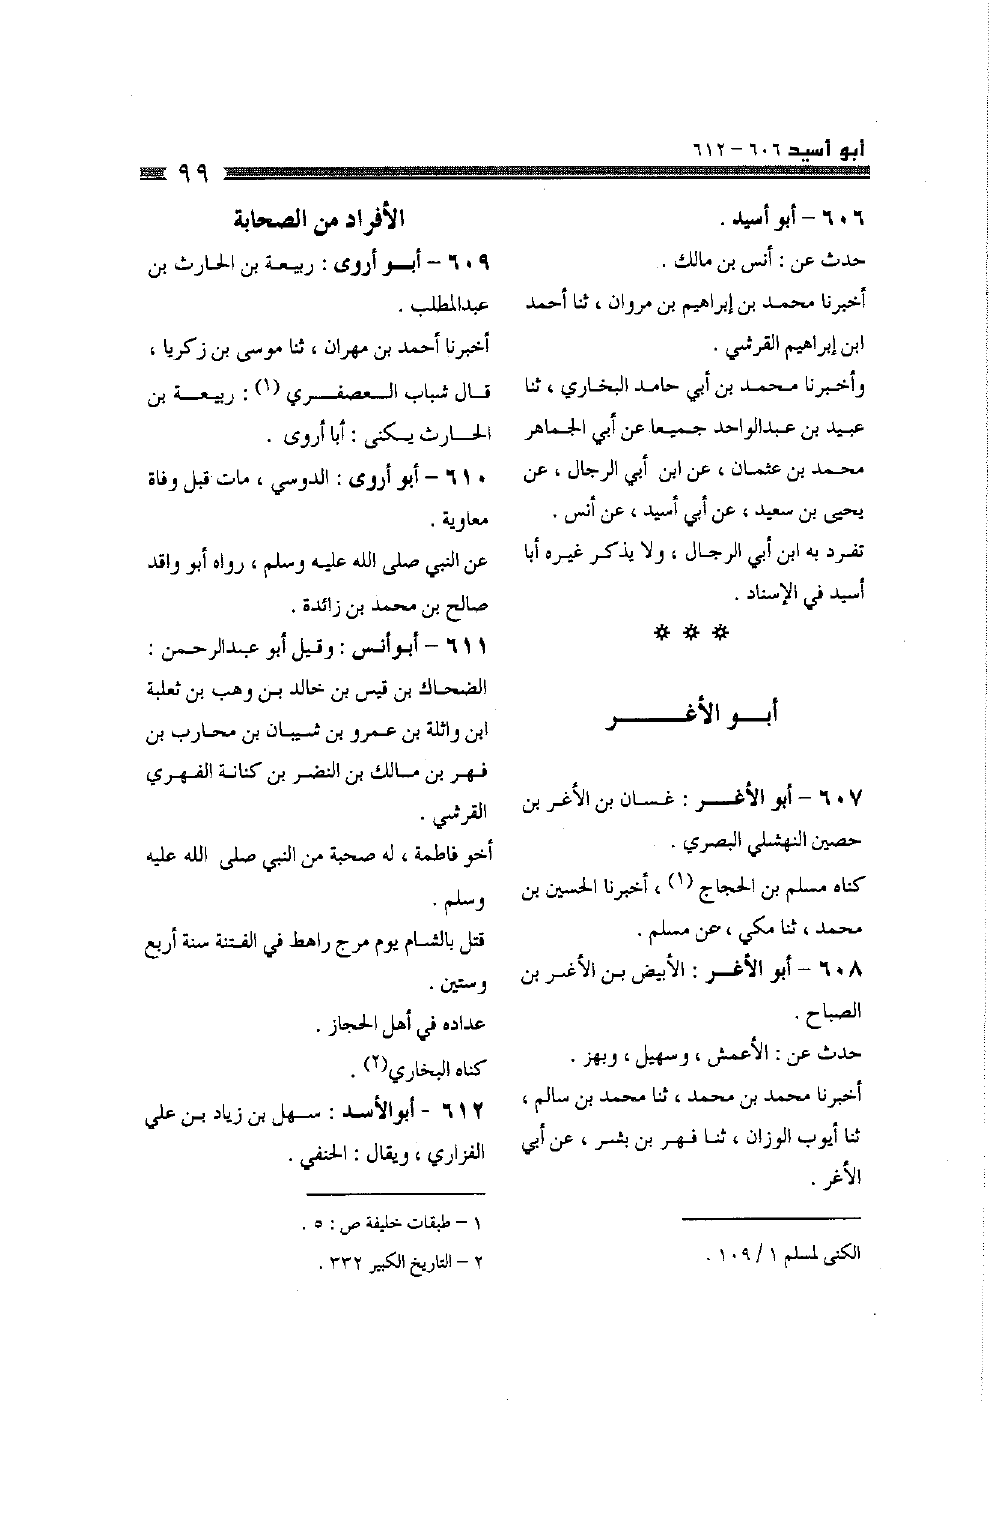 أبو أسيد ٦٠٦ – ٦١٢
٩٩
٦٠٦ – أبو أسيد .
حدث عن : أنس بن مالك .
أخبرنا محمد بن إبراهيم بن مروان ، ثنا أحمد
ابن إبراهيم القرشي .
وأخبرنا محمد بن أبي حامد البخاري ، ثنا
عبيد بن عبدالواحد جميعا عن أبي الجماهر
محمد بن عثمان ، عن ابن أبي الرجال ، عن
يحيى بن سعيد ، عن أبي أسيد ، عن أنس .
تفرد به ابن أبي الرجال ، ولا يذكر غيره أبا
أسيد في الإسناد .
* * *
أبو الأغر
٦٠٧ – أبو الأغر : غسان بن الأغر بن
حصين النهشلي البصري .
كناه مسلم بن الحجاج (١) ، أخبرنا الحسين بن
محمد ، ثنا مكي ، عن مسلم .
٦٠٨ – أبو الأغر : الأبيض بن الأغر بن
الصباح .
حدث عن : الأعمش ، وسهيل ، وبهز .
أخبرنا محمد بن محمد ، ثنا محمد بن سالم ،
ثنا أيوب الوزان ، ثنا فهر بن بشر ، عن أبي
الأغر .
الكنى لمسلم ١ / ١٠٩ .
الأفراد من الصحابة
٦٠٩ – أبو أروى : ربيعة بن الحارث بن
عبدالمطلب .
أخبرنا أحمد بن مهران ، ثنا موسى بن زكريا ،
قال شباب العصفري (١) : ربيعة بن
الحارث يكنى : أبا أروى .
٦١٠ – أبو أروى : الدوسي ، مات قبل وفاة
معاوية .
عن النبي صلى الله عليه وسلم ، رواه أبو واقد
صالح بن محمد بن زائدة .
٦١١ – أبو أنس : وقيل أبو عبدالرحمن :
الضحاك بن قيس بن خالد بن وهب بن ثعلبة
ابن واثلة بن عمرو بن شيبان بن محارب بن
فهر بن مالك بن النضر بن كنانة الفهري
القرشي .
أخو فاطمة ، له صحبة من النبي صلى الله عليه
وسلم .
قتل بالشام يوم مرج راهط في الفتنة سنة أربع
وستين .
عداده في أهل الحجاز .
كناه البخاري(٢) .
٦١٢ - أبو الأسد : سهل بن زياد بن علي
الفزاري ، ويقال : الحنفي .
١ – طبقات خليفة ص : ٥ .
٢ – التاريخ الكبير ٣٣٢ .